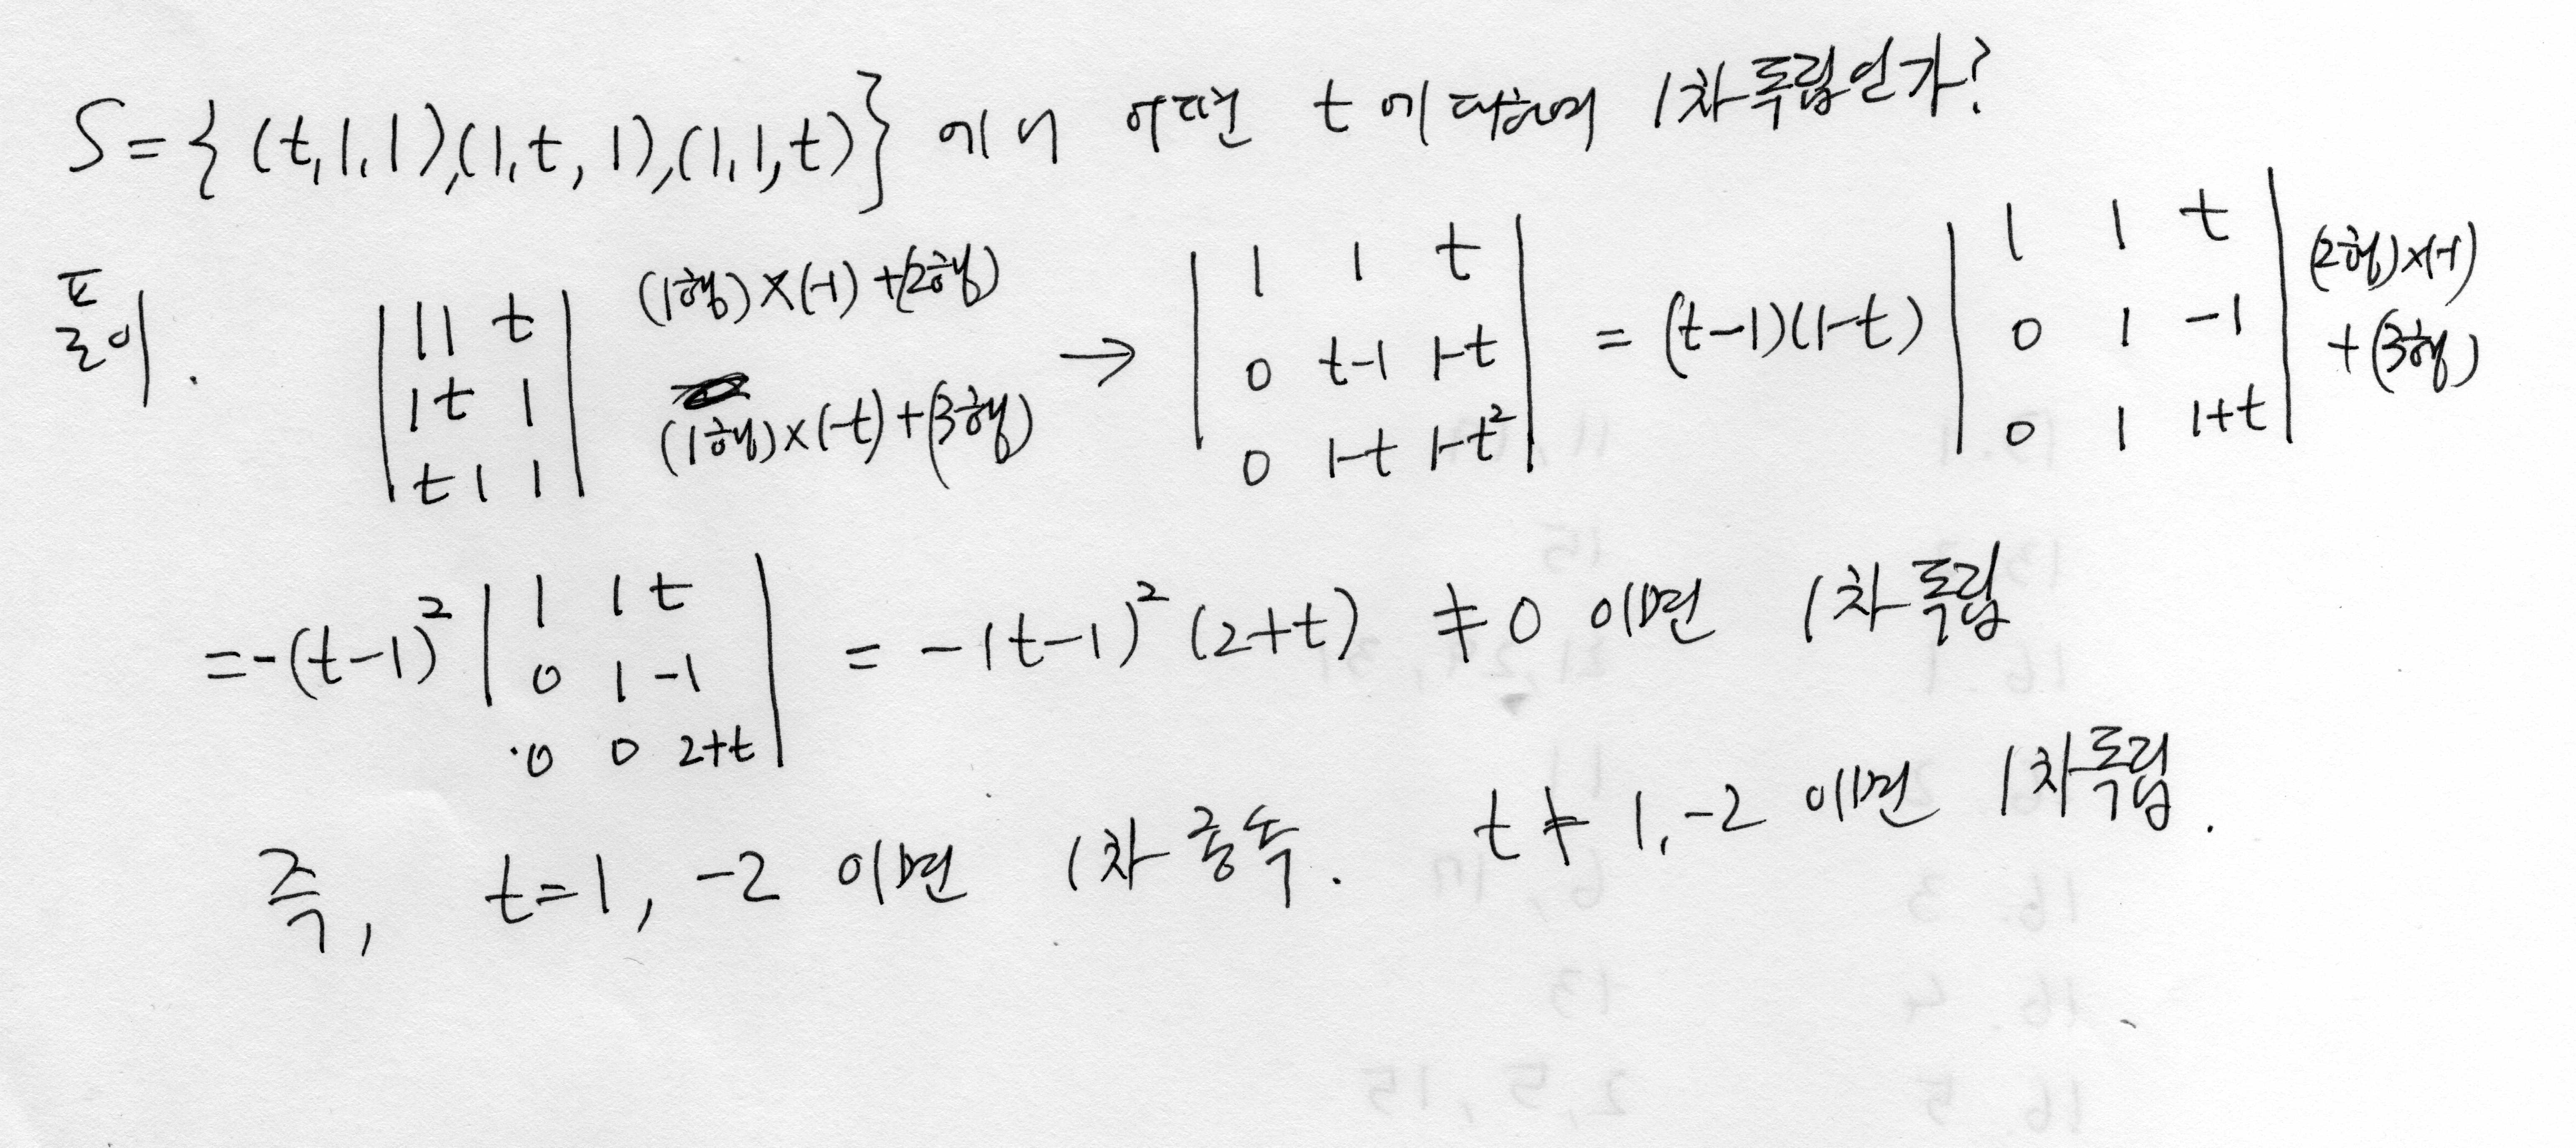 S = { (t,1,1),(1,t,1),(1,1,t)} 에서 어떤 t에 대하여 1차독립인가?
풀이. |1 1 t| (1행)×(-1)+(2행) |1 1 t| |1 1 t| (2행)×(-1)
|1 t 1| → |0 t-1 1-t| = (t-1)(1-t) |0 1 -1| +(3행)
|t 1 1| (1행)×(-t)+(3행) |0 1-t 1-t²| |0 1 1+t|
|1 1 t|
=-(t-1)² |0 1 -1| = -(t-1)² (2+t) ≠ 0 이면 1차독립
|0 0 2+t|
즉, t=1, -2 이면 1차 종속. t ≠ 1, -2 이면 1차독립.